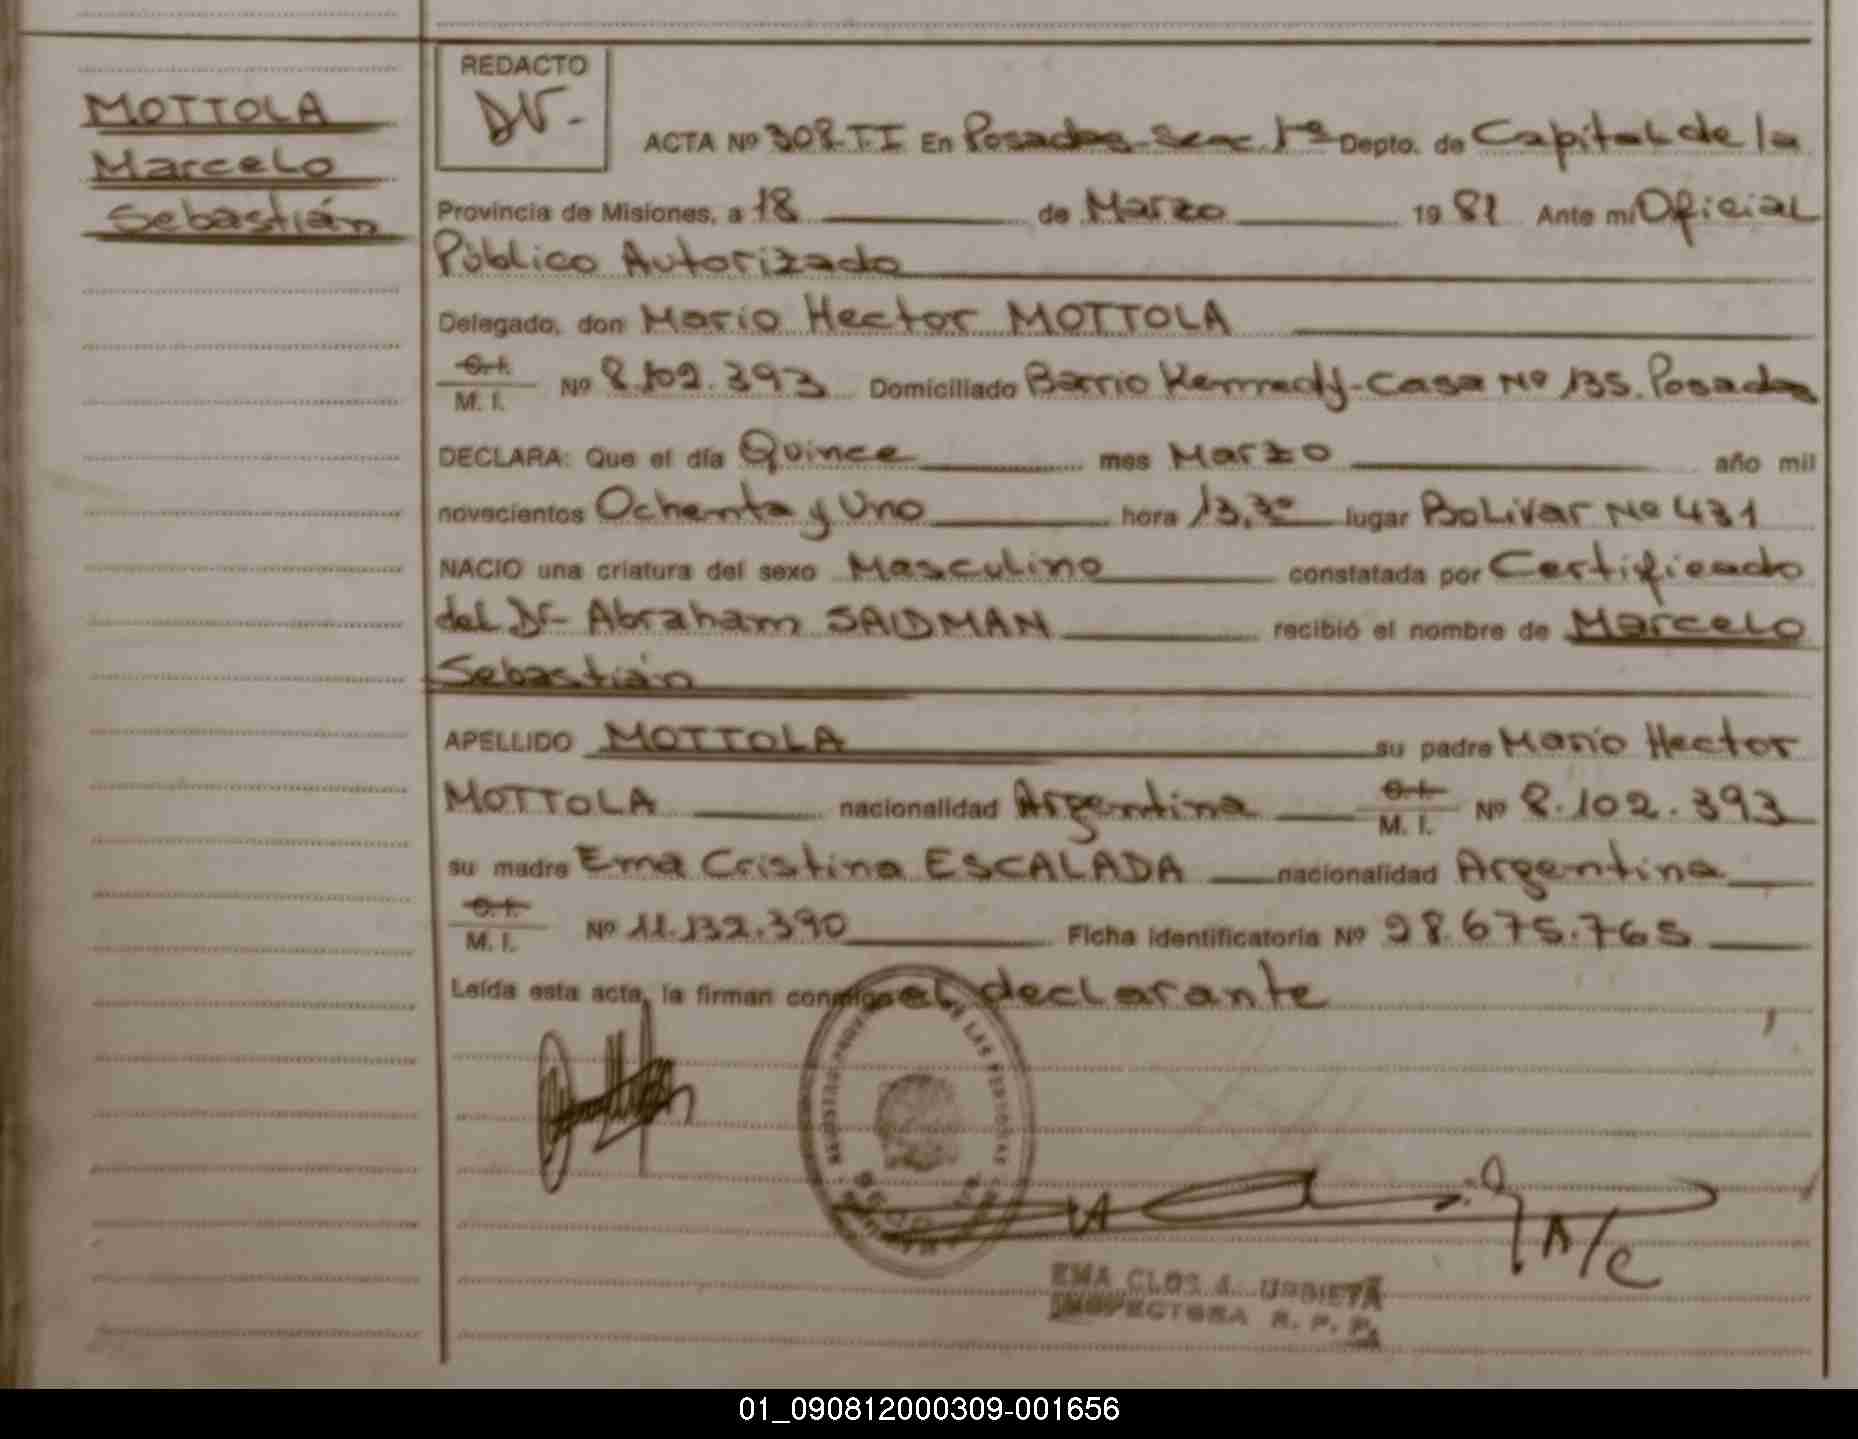 MOTTOLA
Marcelo
Sebastián
REDACTO
ACTA Nº 308-TI En Posadas-Secc. 1ª Depto. de Capital de la
Provincia de Misiones, a 18 de Marzo 1981 Ante mí Oficial
Público Autorizado
Delegado, don Mario Hector MOTTOLA
C.I. M. I. Nº 8.102.393 Domiciliado Barrio Kennedy-Casa Nº 135. Posadas
DECLARA: Que el día Quince mes Marzo año mil
novecientos Ochenta y Uno hora 13,30 lugar Bolivar Nº 431
NACIO una criatura del sexo Masculino constatada por Certificado
del Dr. Abraham SAIDMAN recibió el nombre de Marcelo
Sebastián
APELLIDO MOTTOLA su padre Mario Hector
MOTTOLA nacionalidad Argentina C.I. M. I. Nº 8.102.393
su madre Ema Cristina ESCALADA nacionalidad Argentina
C.I. M. I. Nº 11.132.390 Ficha identificatoria Nº 28.675.765
Leída esta acta, la firman conmigo el declarante
DE LAS PERSONAS
A/C
EMA CLOS A. URBIETA
INSPECTORA R. P. P.
01_090812000309-001656